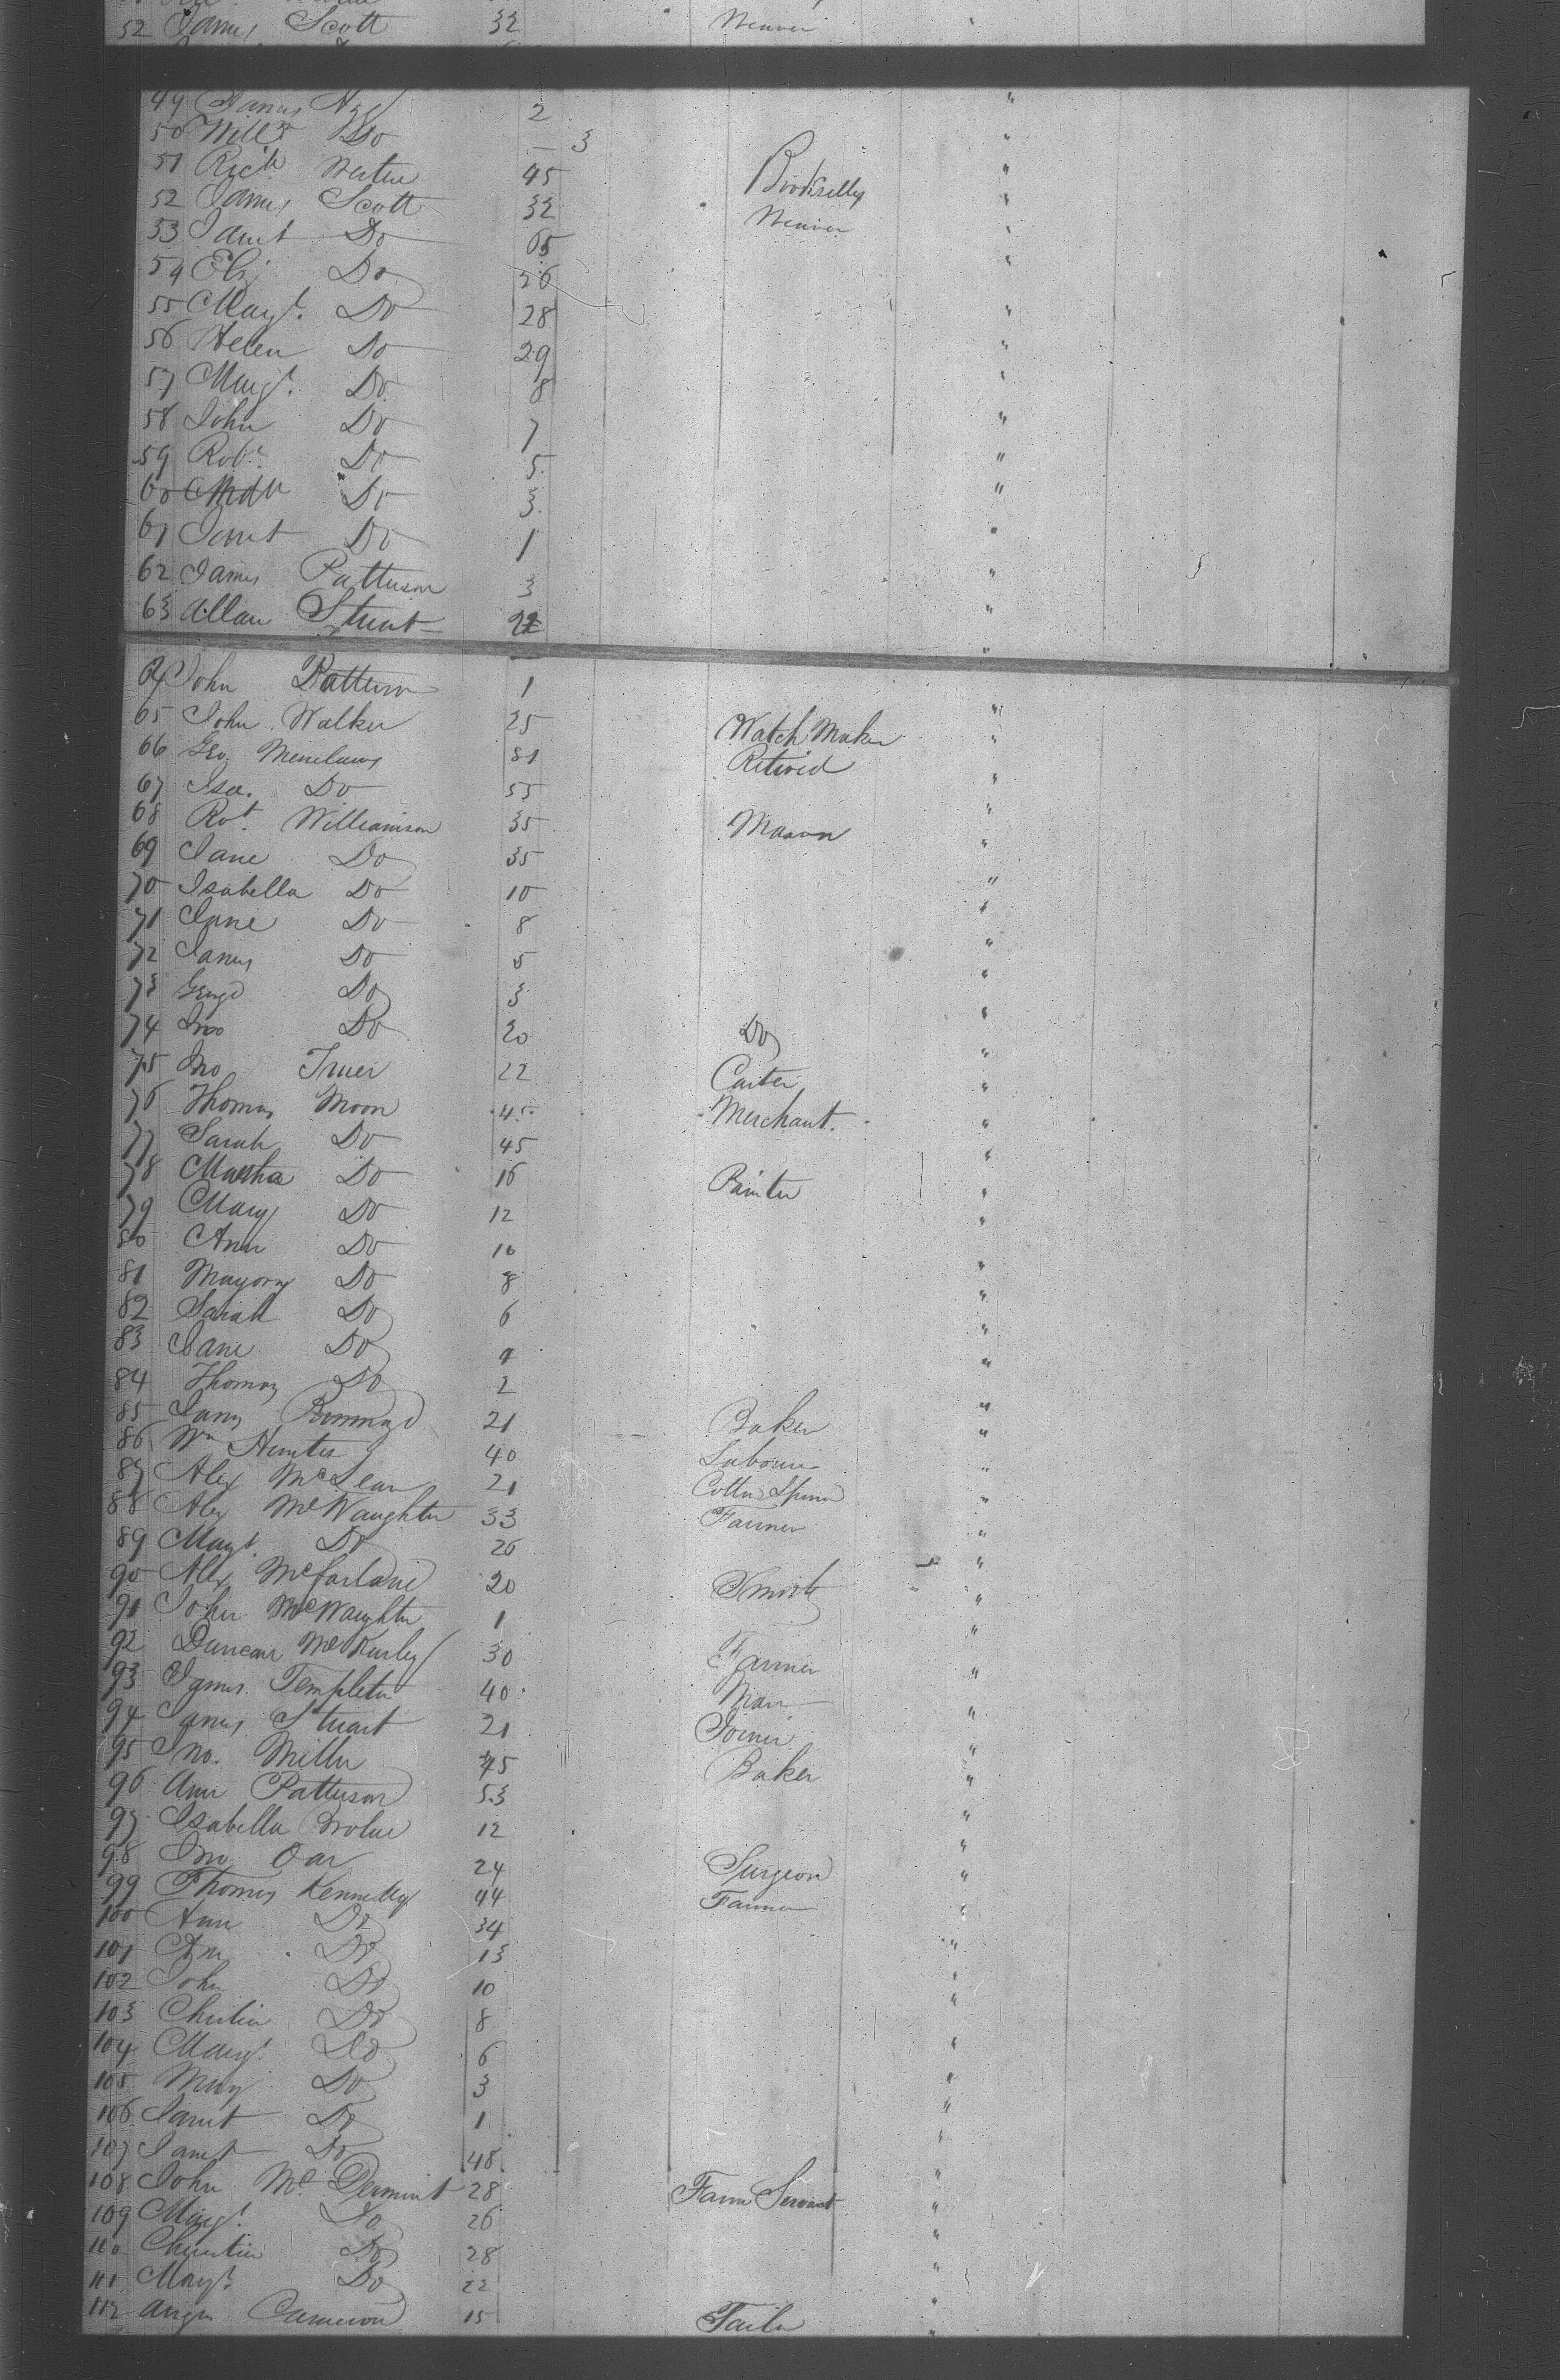 52 James Scott 32 Weaver
49 James 2 "
50 Willm Do — 3 "
51 Richd 45 Bookseller "
52 James Scott 32 Weaver "
53 Janet Do 65 "
54 Eliz Do 26
55 Margt. Do 28 "
56 Helen Do 29 "
57 Margt. Do 8 "
58 John Do 7 "
59 Robt. Do 5 "
60 Do 3 "
61 Janet Do 1 "
62 James Patterson 3 "
63 Allan Stuart "
64 John Patterson 1 "
65 John Walker 25 Watch Maker "
66 Geo. Menelaws 81 Retired "
67 Isa. Do 55 "
68 Rot. Williamson 35 Mason "
69 Jane Do 35 "
70 Isabella Do 10 "
71 Jane Do 8 "
72 James Do 5 "
73 George Do 3 "
74 Jno Do 20 Do "
75 Jno 22 Carter "
76 Thomas Moon 45 Merchant. "
77 Sarah Do 45 "
78 Martha Do 16 Painter "
79 Mary Do 12 "
80 Ann Do 10 "
81 Marjory Do 8 "
82 Sarah Do 6 "
83 Jane Do 4 "
84 Thomas Do 2 "
85 James 21 Baker "
86 Wm Hunter 40 Labourer "
87 Alex McLean 21 Cotton Spinner "
88 Alex McNaughton 33 Farmer "
89 Margt. Do 26 "
90 Alex McFarlane 20 Smith "
91 John McNaughton 1 "
92 Duncan 30 Farmer "
93 James Templeton 40 "
94 James Stuart 21 Joiner "
95 Jno. Miller 45 Baker "
96 Ann Patterson 53 "
97 Isabella 12 "
98 Jno Oar 24 Surgeon "
99 Thomas Kennedy 44 Farmer "
100 Ann Do 34 "
101 Do 13 "
102 John Do 10 "
103 Christian Do 8
104 Margt. Do 6 "
105 May Do 3 "
106 Janet Do 1 "
107 Janet Do 48 "
108 John McDermint 28 Farm Servant "
109 Margt. Do 26 "
110 Christian Do 28 "
111 Margt. Do 22 "
112 Angus Cameron 15 Tailor "